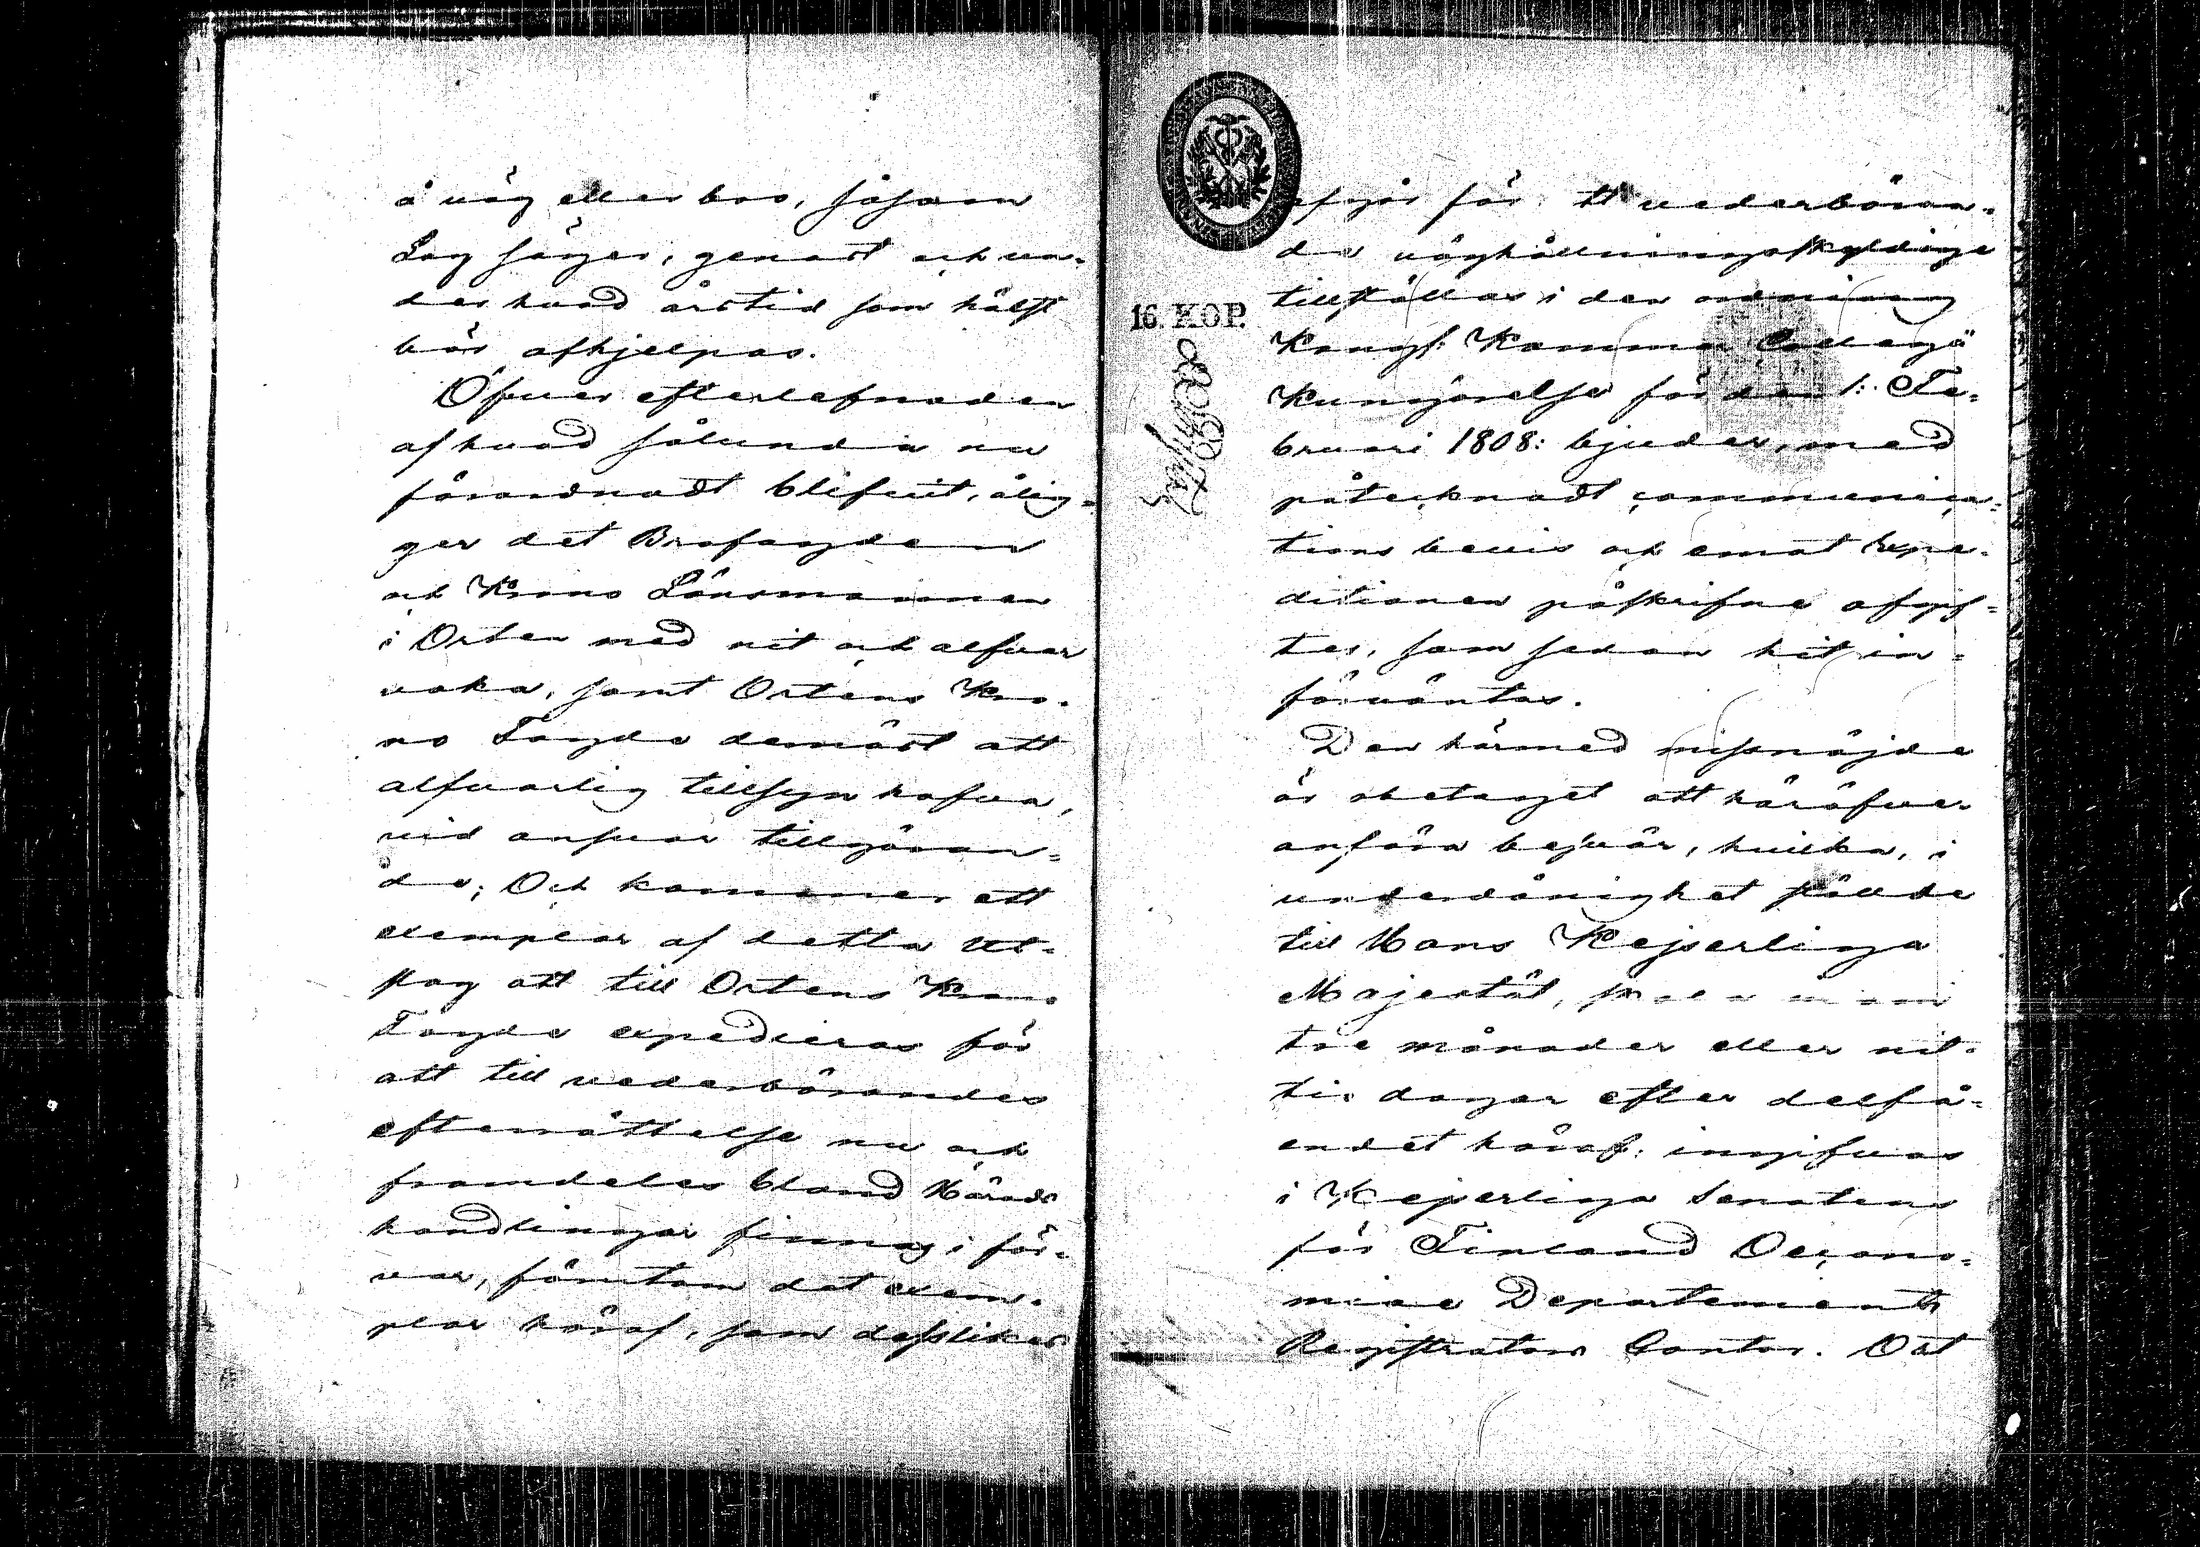 å väg eller bro, såsom
Lag säger, genast och un-
der hvad årstid som hälst
bör afhjelpas.
Öfver efterlefnaden
af hvad sålunda nu
förordnadt blifvit, ålig-
ger det Brofogden
och Krono Länsmannen
i Orten med nit och alfvar
vaka, samt Ortens Kro-
no Fogde demäst att
alfvarlig tillsyn hafva,
vid ansvar tillgöran-
de; Och kommer ett
exemplar af detta Ut-
slag att till Ortens Krono
Fogde expedieras för
att till vederbörandes
efterrättelse nu och
framdeles bland Härads
handlingar finnas i för-
var, förutom det exem-
plar häraf, som dessliker
afgår för att vederböran-
de väghållningsskyldige
tillställas i den ordning
Kongl: Kammar Collegii
Kungörelse för den 1: Fe-
bruari 1808: bjuder, med
påtecknadt communica-
tions bevis och emot Expe-
ditionen påskrifne afgif-
ter, som sedan hit in-
förväntas.
Den härmed missnöjde
är obetaget att häröfver
anföra besvär, hvilka, i
underdånighet stälde
till Hans Kejserliga
Majestät, böra inom
tre månader eller nit-
tio dagar efter delfå-
endet häraf: ingifvas
i Kejserliga Senatens
för Finland Oecono-
miae Departements
Registrators Contor. Ort
16. KOP.